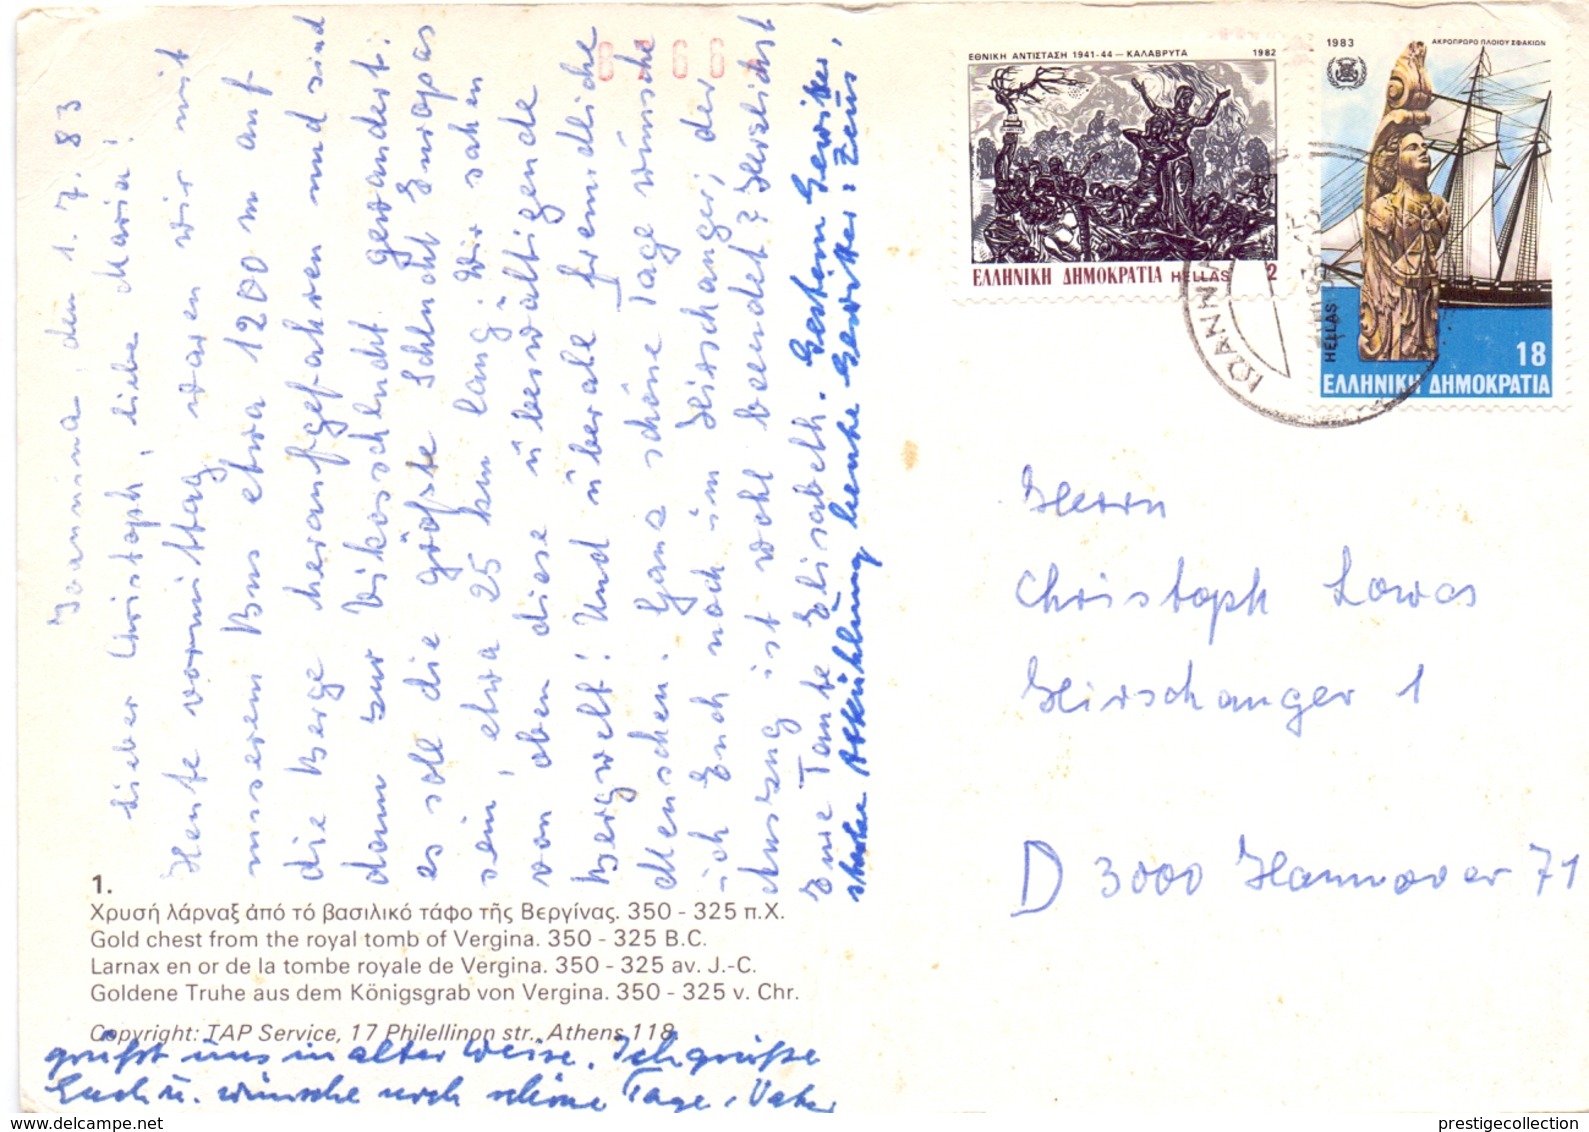 Ioannina, den 1.7.83
Lieber Christoph, liebe Maria!
Heute vormittag waren wir mit
unserem Bus etwa 1200 m auf
die Berge heraufgefahren und sind
dann zur Vikosschlucht gewandert.
es soll die größte Schlucht Europas
sein, etwa 25 km lang. Wir sahen
von oben diese überwältigende
Bergwelt! Und überall freundliche
Menschen. Ganz schöne Tage wünsche
ich Euch noch im Hirschanger, der
Auszug ist wohl beendet? Herzlichst
Eure Tante Elisabeth. Gestern Gewitter,
starke Abkühlung heute Gewitter: Zeus
grüßt uns in alter Weise. Ich grüße
Euch u. wünsche noch schöne Tage, Vater
1.
Χρυσή λάρναξ ἀπό τό βασιλικό τάφο τῆς Βεργίνας. 350 - 325 π.Χ.
Gold chest from the royal tomb of Vergina. 350 - 325 B.C.
Larnax en or de la tombe royale de Vergina. 350 - 325 av. J.-C.
Goldene Truhe aus dem Königsgrab von Vergina. 350 - 325 v. Chr.
Copyright: TAP Service, 17 Philellinon str., Athens 118
ΕΘΝΙΚΗ ΑΝΤΙΣΤΑΣΗ 1941-44 — ΚΑΛΑΒΡΥΤΑ 1982
ΕΛΛΗΝΙΚΗ ΔΗΜΟΚΡΑΤΙΑ HELLAS 2
1983 ΑΚΡΟΠΡΩΡΟ ΠΛΟΙΟΥ ΣΦΑΚΙΩΝ
HELLAS
18
ΕΛΛΗΝΙΚΗ ΔΗΜΟΚΡΑΤΙΑ
ΙΩΑΝΝΙΝΑ
Herrn
Christoph Lowas
Hirschanger 1
D 3000 Hannover 71
www.delcampe.net
prestigecollection